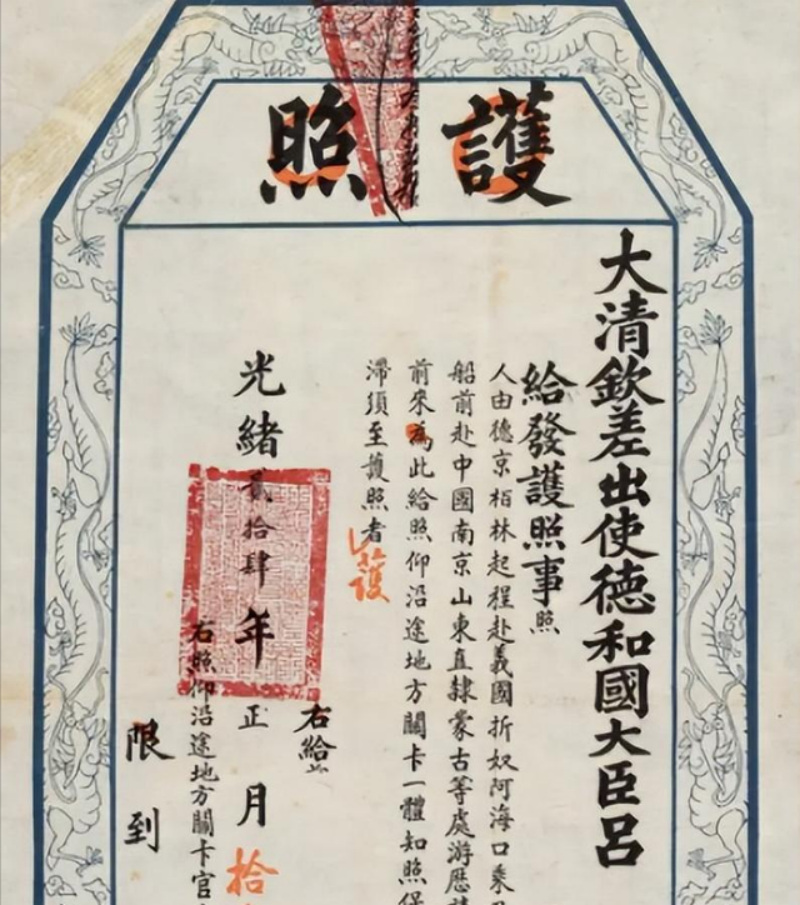 護照
大清欽差出使德和國大臣呂
給發護照事照
人由德京栢林起程赴義國折奴阿海口乘
船前赴中國南京山東直隸蒙古等處游歷請
前來為此給照仰沿途地方關卡一體知照保
滯須至護照者
護
右給
光緒貳拾肆年正月拾
右照仰沿途地方關卡官
限到